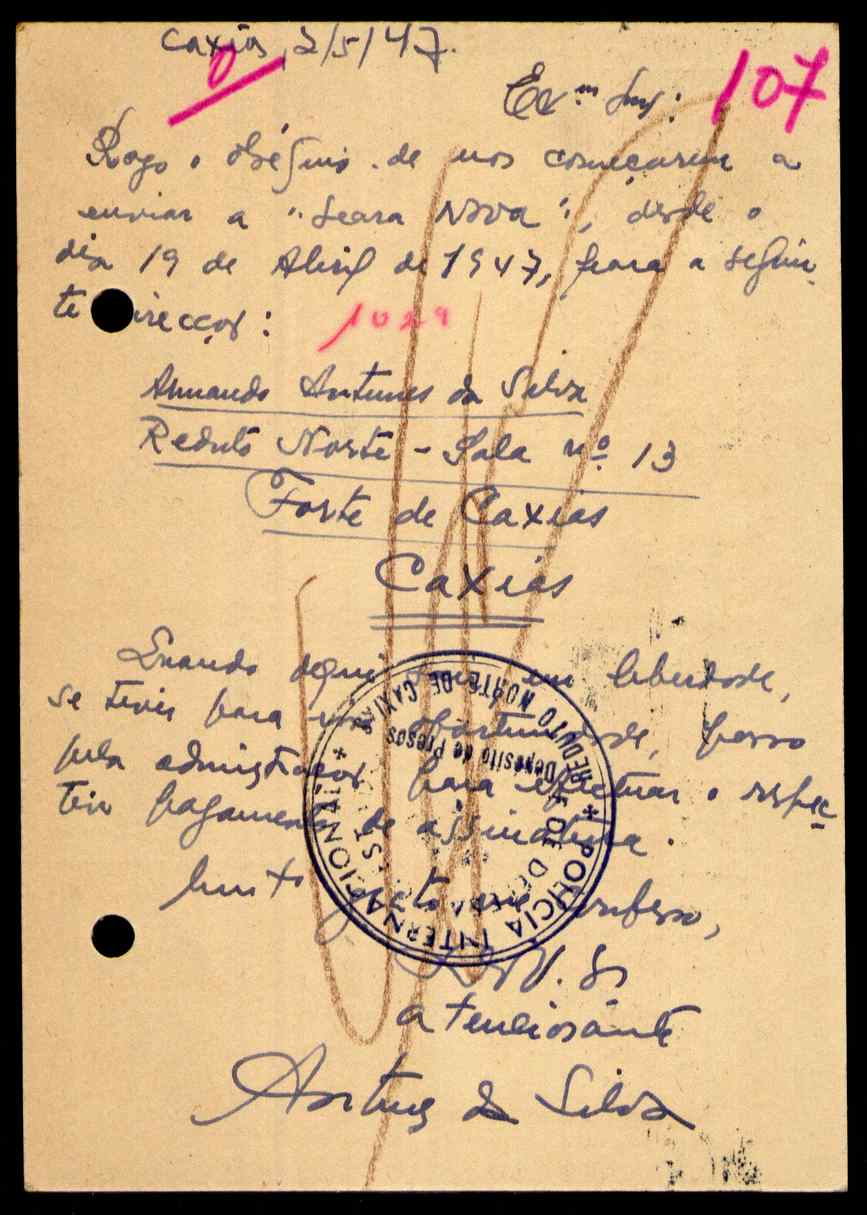 Caxias, 2/5/47.
0
107
Ex.mo Snr:
Rogo o obséquio de nos começarem a
enviar a "Seara Nova", desde o
dia 19 de Abril de 1947, para a seguin-
te direcção:
1029
Armando Antunes da Silva
Reduto Norte - Sala nº 13
Forte de Caxias
Caxias
Quando daqui em liberdade,
se tiver para oportunidade, passo
pela administração para efectuar o respec-
tivo pagamento de assinatura.
Muito grato me confesso,
De V. Ex
atenciosamente
Antunes da Silva
POLÍCIA INTERNACIONAL
DE DEFESA
REDUTO NORTE DE CAXIAS
Depósito de Presos